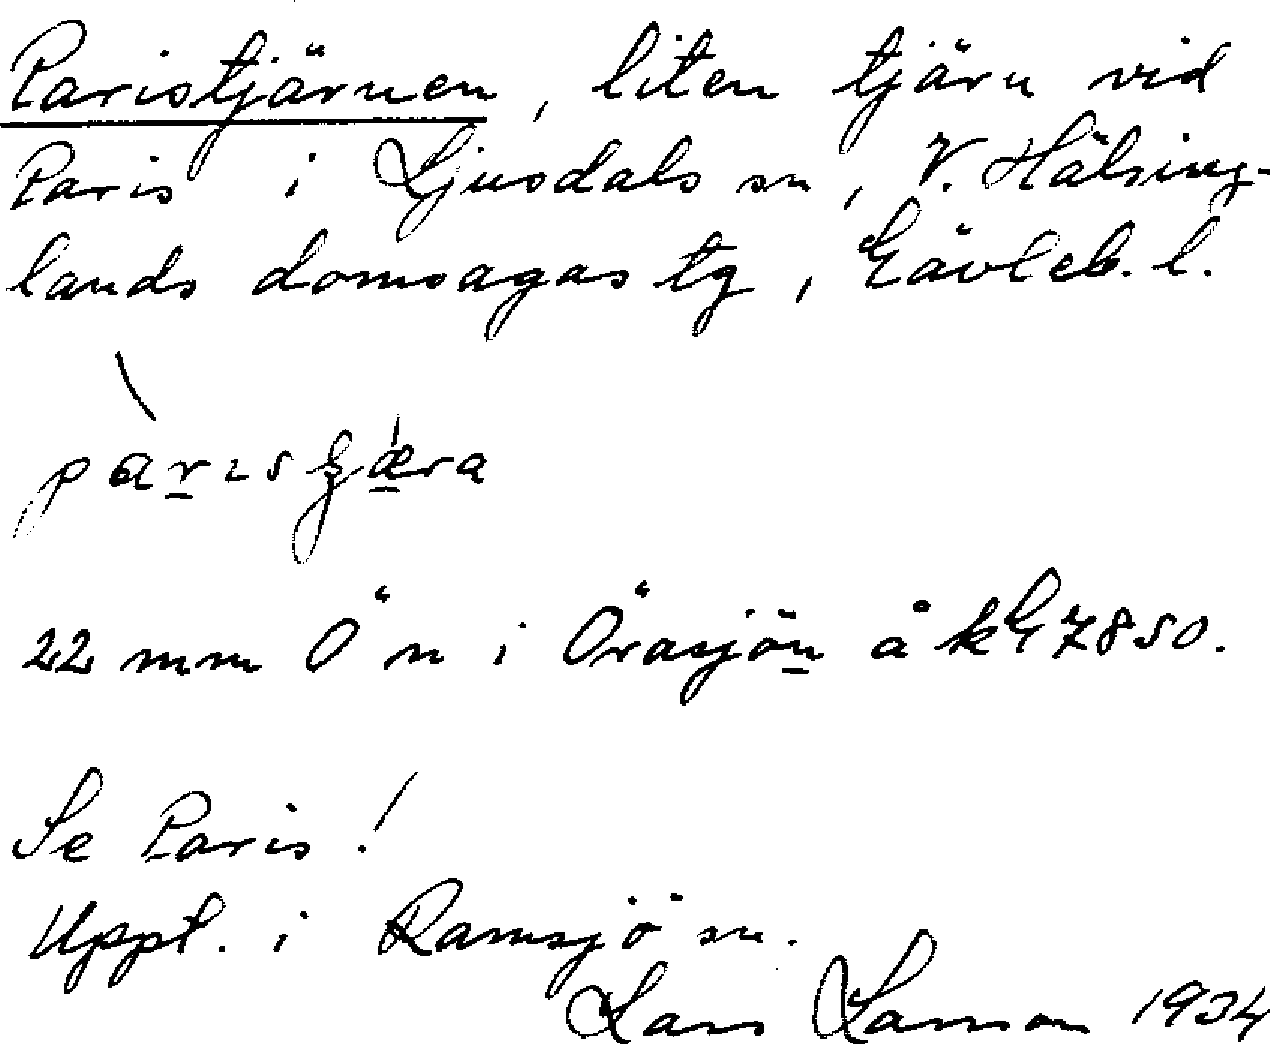 Paristjärnen, liten tjärn vid
Paris i Ljusdals sn, V. Hälsing-
lands domsagas tg, Gävleb. l.
22 mm Ö n i Örasjön å kG 7850.
Se Paris!
Uppt. i Ramsjö sn.
Lars Larsson 1934